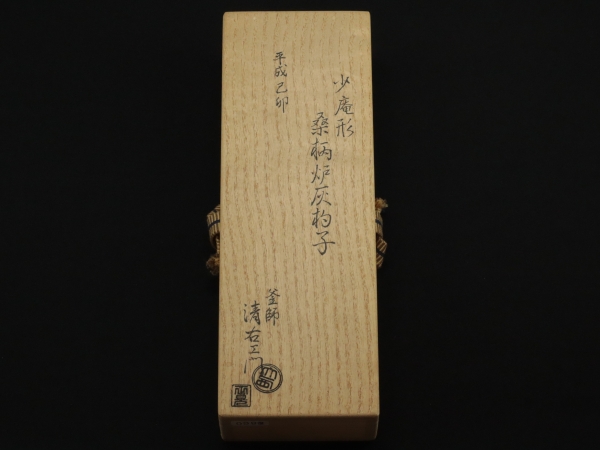 少庵形
桑柄炉灰杓子
平成己卯
釜師
清右エ門